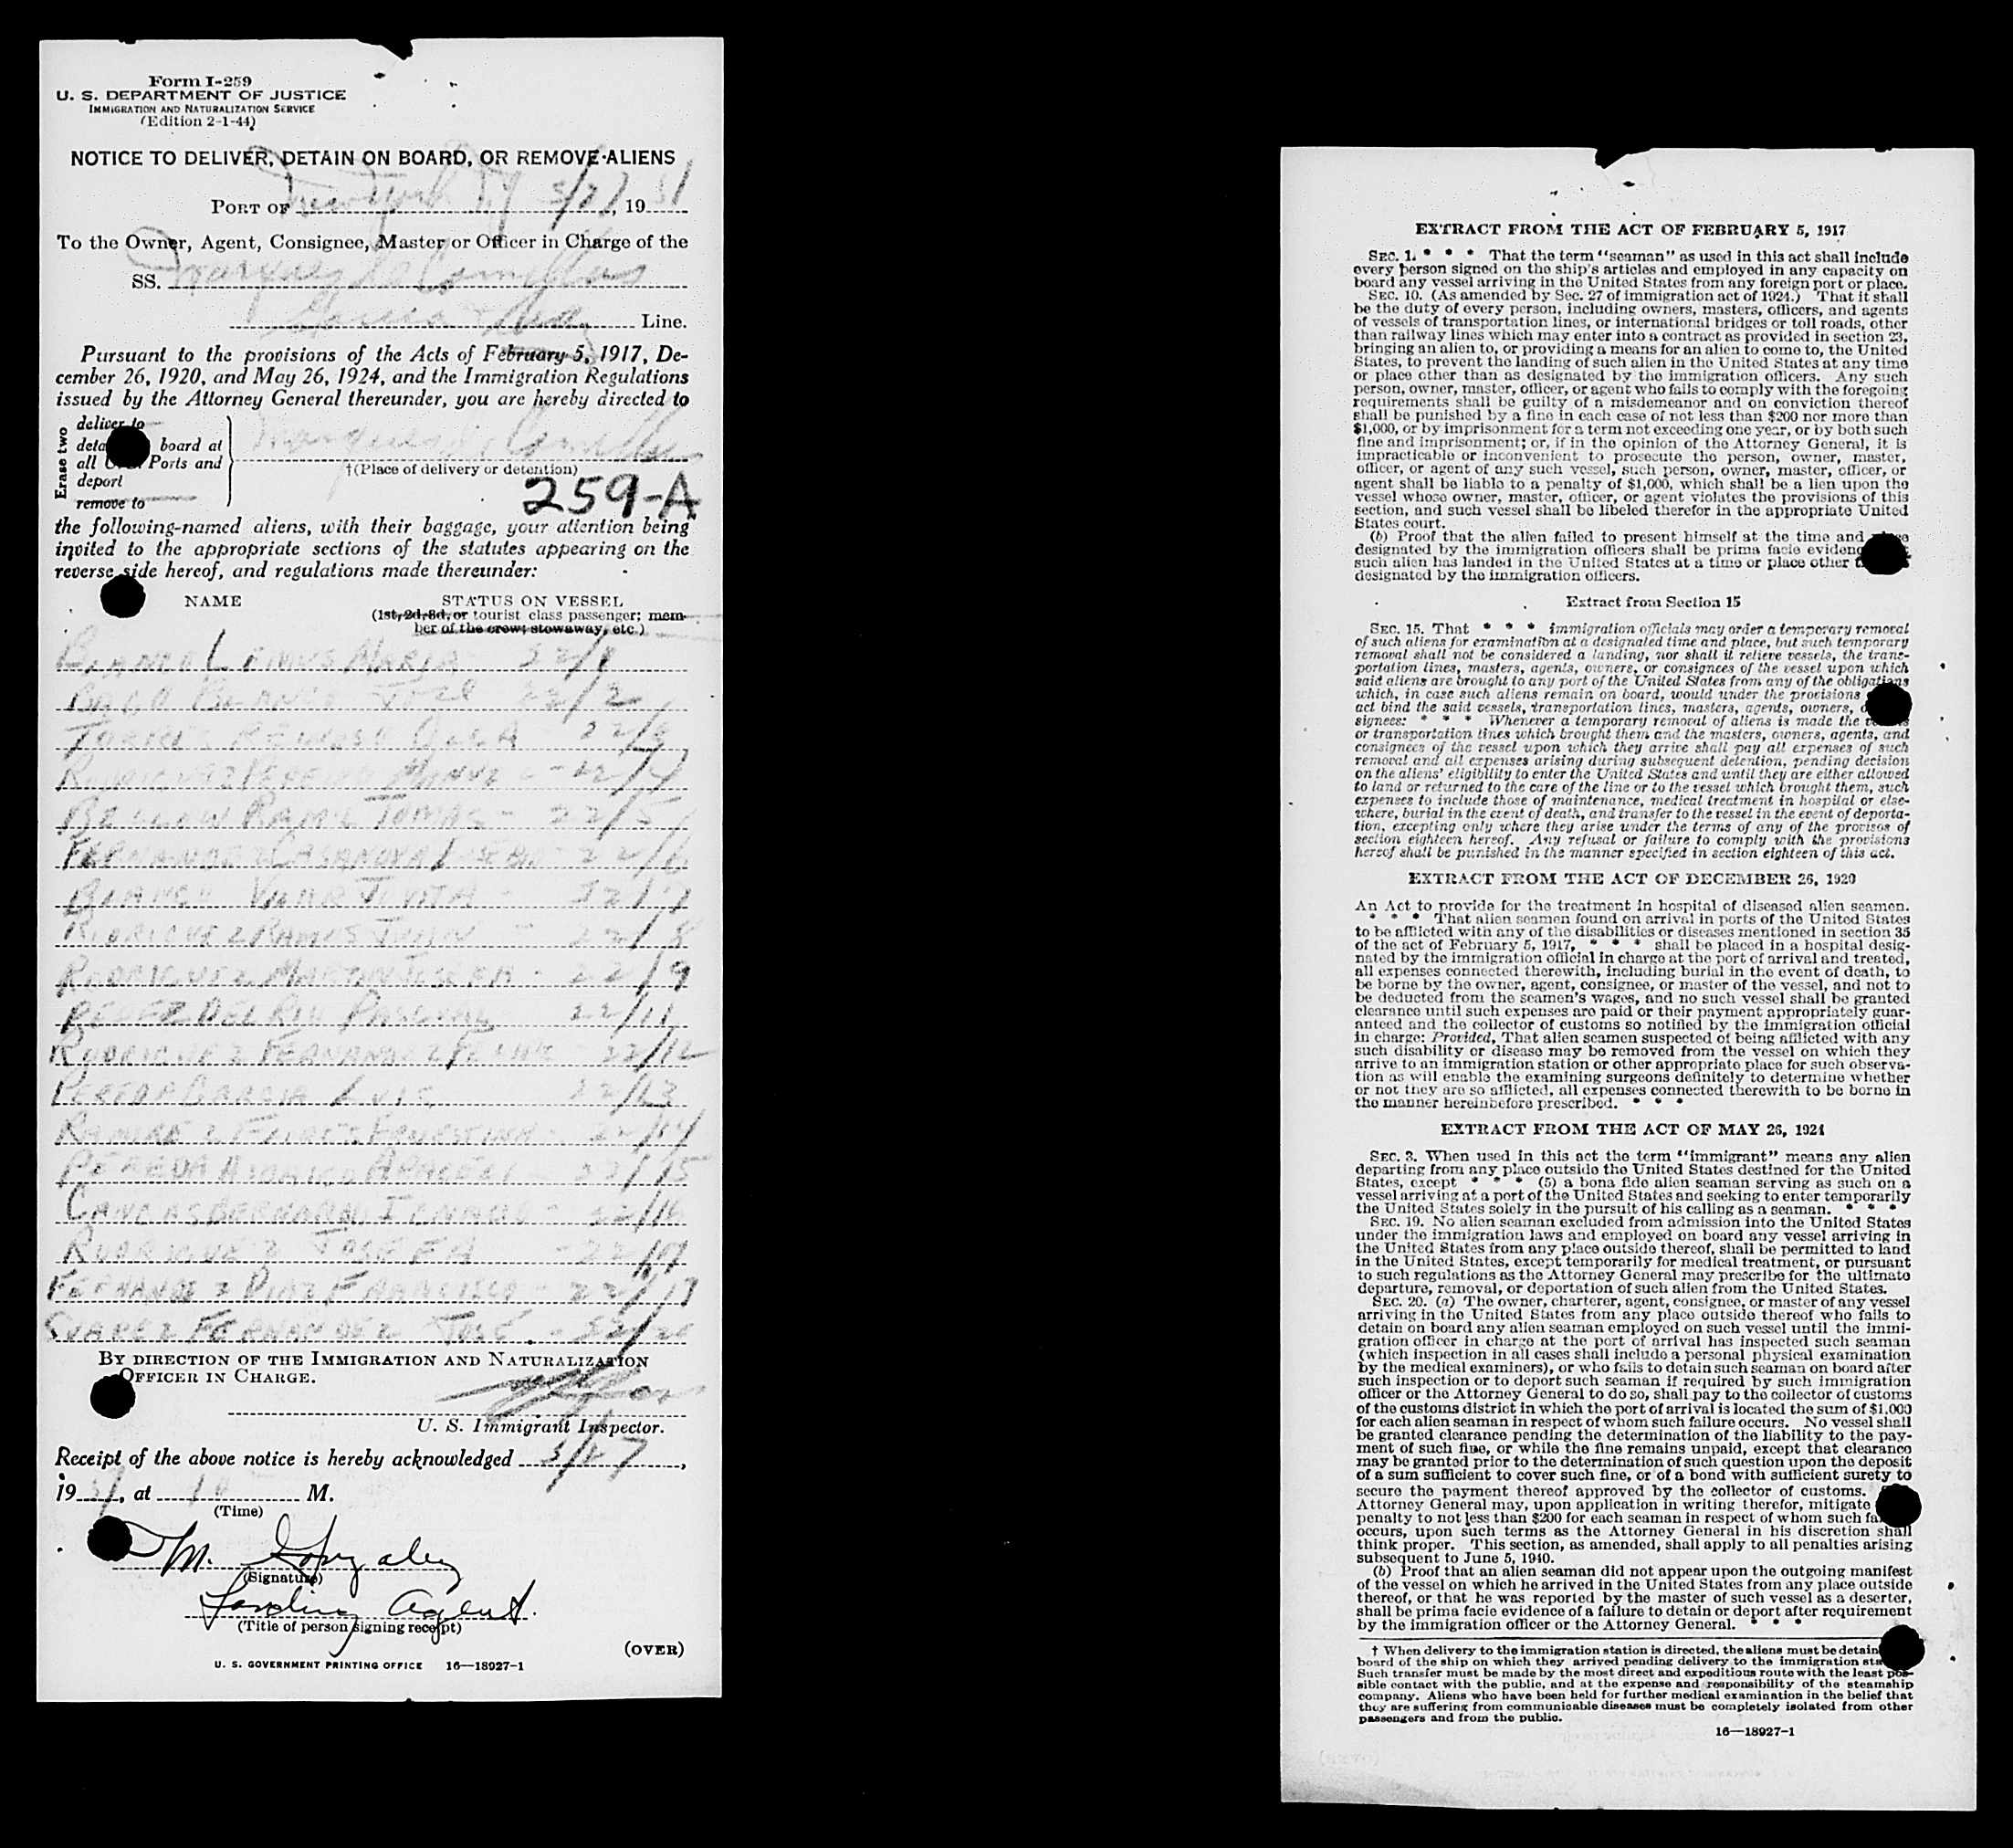 Form I-259
U. S. DEPARTMENT OF JUSTICE
IMMIGRATION AND NATURALIZATION SERVICE
(Edition 2-1-44)
NOTICE TO DELIVER, DETAIN ON BOARD, OR REMOVE ALIENS
PORT OF New York NY 3/27, 19 51
To the Owner, Agent, Consignee, Master or Officer in Charge of the
SS. Marques de Comillas
Garcia & Diaz Line.
Pursuant to the provisions of the Acts of February 5, 1917, De-
cember 26, 1920, and May 26, 1924, and the Immigration Regulations
issued by the Attorney General thereunder, you are hereby directed to
Erase two
deliver to
board at
all Ports and
deport
remove to
Marques de Comillas
†(Place of delivery or detention)
259-A
the following-named aliens, with their baggage, your attention being
invited to the appropriate sections of the statutes appearing on the
reverse side hereof, and regulations made thereunder:
NAME STATUS ON VESSEL
(1st, 2d, 3d, or tourist class passenger; mem-
ber of the crew; stowaway, etc.)
BLANCO LEMUS MARIA 22/1
BLANCO JOSE 22/2
TORRES REINOSO OLGA - 22/3
RODRIGUEZ 22/4
RAMIL TOMAS - 22/5
FERNANDEZ CASANOVA 22/6
BLANCO VILAR - 22/7
RODRIGUEZ RAMOS JUAN - 22/8
RODRIGUEZ MARTIN - 22/9
PEREZ DEL RIO PASCUAL 22/11
RODRIGUEZ FERNANDEZ FELIPE - 22/12
PEREDA GARCIA LUIS 22/13
RAMIREZ - 22/14
PEREDA ARACELI - 22/15
- 22/16
RODRIGUEZ JOSEFA - 22/17
FERNANDEZ DIAZ FRANCISCO - 22/19
SUAREZ FERNANDEZ JOSE - 22/20
BY DIRECTION OF THE IMMIGRATION AND NATURALIZATION
OFFICER IN CHARGE.
U. S. Immigrant Inspector.
Receipt of the above notice is hereby acknowledged 3/27,
19 51, at 10 M.
(Time)
M. Gonzalez
(Signature)
Landing Agent.
(Title of person signing receipt)
(OVER)
U. S. GOVERNMENT PRINTING OFFICE 16—18927-1
EXTRACT FROM THE ACT OF FEBRUARY 5, 1917
SEC. 1. * * * That the term "seaman" as used in this act shall include
every person signed on the ship's articles and employed in any capacity on
board any vessel arriving in the United States from any foreign port or place.
SEC. 10. (As amended by Sec. 27 of immigration act of 1924.) That it shall
be the duty of every person, including owners, masters, officers, and agents
of vessels of transportation lines, or international bridges or toll roads, other
than railway lines which may enter into a contract as provided in section 23,
bringing an alien to, or providing a means for an alien to come to, the United
States, to prevent the landing of such alien in the United States at any time
or place other than as designated by the immigration officers. Any such
person, owner, master, officer, or agent who fails to comply with the foregoing
requirements shall be guilty of a misdemeanor and on conviction thereof
shall be punished by a fine in each case of not less than $200 nor more than
$1,000, or by imprisonment for a term not exceeding one year, or by both such
fine and imprisonment; or, if in the opinion of the Attorney General, it is
impracticable or inconvenient to prosecute the person, owner, master,
officer, or agent of any such vessel, such person, owner, master, officer, or
agent shall be liable to a penalty of $1,000, which shall be a lien upon the
vessel whose owner, master, officer, or agent violates the provisions of this
section, and such vessel shall be libeled therefor in the appropriate United
States court.
(b) Proof that the alien failed to present himself at the time and place
designated by the immigration officers shall be prima facie evidence
such alien has landed in the United States at a time or place other
designated by the immigration officers.
Extract from Section 15
SEC. 15. That * * * immigration officials may order a temporary removal
of such aliens for examination at a designated time and place, but such temporary
removal shall not be considered a landing, nor shall it relieve vessels, the trans-
portation lines, masters, agents, owners, or consignees of the vessel upon which
said aliens are brought to any port of the United States from any of the obligations
which, in case such aliens remain on board, would under the provisions
act bind the said vessels, transportation lines, masters, agents, owners,
signees: * * * Whenever a temporary removal of aliens is made the vessels
or transportation lines which brought them and the masters, owners, agents, and
consignees of the vessel upon which they arrive shall pay all expenses of such
removal and all expenses arising during subsequent detention, pending decision
on the aliens' eligibility to enter the United States and until they are either allowed
to land or returned to the care of the line or to the vessel which brought them, such
expenses to include those of maintenance, medical treatment in hospital or else-
where, burial in the event of death, and transfer to the vessel in the event of deporta-
tion, excepting only where they arise under the terms of any of the provisos of
section eighteen hereof. Any refusal or failure to comply with the provisions
hereof shall be punished in the manner specified in section eighteen of this act.
EXTRACT FROM THE ACT OF DECEMBER 26, 1920
An Act to provide for the treatment in hospital of diseased alien seamen.
* * * That alien seamen found on arrival in ports of the United States
to be afflicted with any of the disabilities or diseases mentioned in section 35
of the act of February 5, 1917, * * * shall be placed in a hospital desig-
nated by the immigration official in charge at the port of arrival and treated,
all expenses connected therewith, including burial in the event of death, to
be borne by the owner, agent, consignee, or master of the vessel, and not to
be deducted from the seamen's wages, and no such vessel shall be granted
clearance until such expenses are paid or their payment appropriately guar-
anteed and the collector of customs so notified by the immigration official
in charge: Provided, That alien seamen suspected of being afflicted with any
such disability or disease may be removed from the vessel on which they
arrive to an immigration station or other appropriate place for such observa-
tion as will enable the examining surgeons definitely to determine whether
or not they are so afflicted, all expenses connected therewith to be borne in
the manner hereinbefore prescribed. * * *
EXTRACT FROM THE ACT OF MAY 26, 1924
SEC. 3. When used in this act the term "immigrant" means any alien
departing from any place outside the United States destined for the United
States, except * * * (5) a bona fide alien seaman serving as such on a
vessel arriving at a port of the United States and seeking to enter temporarily
the United States solely in the pursuit of his calling as a seaman. * * *
SEC. 19. No alien seaman excluded from admission into the United States
under the immigration laws and employed on board any vessel arriving in
the United States from any place outside thereof, shall be permitted to land
in the United States, except temporarily for medical treatment, or pursuant
to such regulations as the Attorney General may prescribe for the ultimate
departure, removal, or deportation of such alien from the United States.
SEC. 20. (a) The owner, charterer, agent, consignee, or master of any vessel
arriving in the United States from any place outside thereof who fails to
detain on board any alien seaman employed on such vessel until the immi-
gration officer in charge at the port of arrival has inspected such seaman
(which inspection in all cases shall include a personal physical examination
by the medical examiners), or who fails to detain such seaman on board after
such inspection or to deport such seaman if required by such immigration
officer or the Attorney General to do so, shall pay to the collector of customs
of the customs district in which the port of arrival is located the sum of $1,000
for each alien seaman in respect of whom such failure occurs. No vessel shall
be granted clearance pending the determination of the liability to the pay-
ment of such fine, or while the fine remains unpaid, except that clearance
may be granted prior to the determination of such question upon the deposit
of a sum sufficient to cover such fine, or of a bond with sufficient surety to
secure the payment thereof approved by the collector of customs.
Attorney General may, upon application in writing therefor, mitigate
penalty to not less than $200 for each seaman in respect of whom such
occurs, upon such terms as the Attorney General in his discretion shall
think proper. This section, as amended, shall apply to all penalties arising
subsequent to June 5, 1940.
(b) Proof that an alien seaman did not appear upon the outgoing manifest
of the vessel on which he arrived in the United States from any place outside
thereof, or that he was reported by the master of such vessel as a deserter,
shall be prima facie evidence of a failure to detain or deport after requirement
by the immigration officer or the Attorney General. * * *
† When delivery to the immigration station is directed, the aliens must be
board of the ship on which they arrived pending delivery to the immigration
Such transfer must be made by the most direct and expeditious route with the least pos-
sible contact with the public, and at the expense and responsibility of the steamship
company. Aliens who have been held for further medical examination in the belief that
they are suffering from communicable diseases must be completely isolated from other
passengers and from the public.
16—18927-1